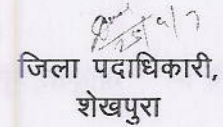 जिला पदाधिकारी,
शेखपुरा